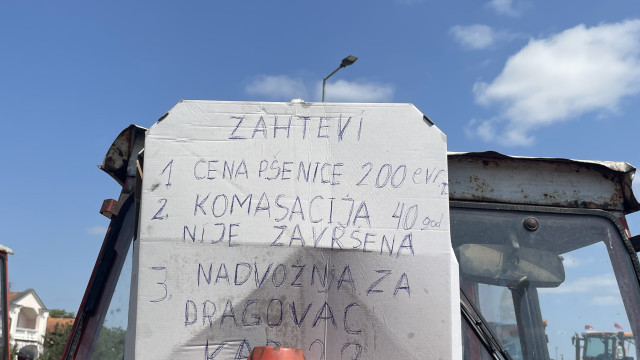 ZAHTEVI
1 CENA PŠENICE 200 evr.
2. KOMASACIJA 40 god
NIJE ZAVRŠENA
3. NADVOZNJAZA
DRAGOVAC